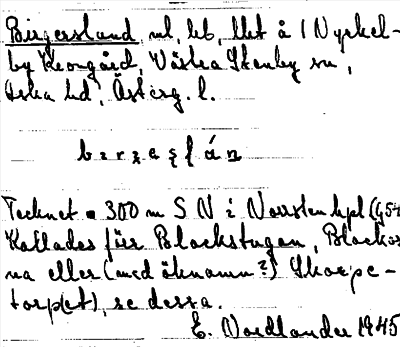 Birgersland, nl, lib, llet å 1 Nyckel-
by Kronogård, Västra Stenby sn,
Aska hd, Österg. l.
Tecknet ca 300 m S N i Norrsten hpl (G54
Kallades förr Blockstugan, Blockor
na eller (med öknamn?) Skorpe-
torp(et), se dessa.
E. Nordlander 1945